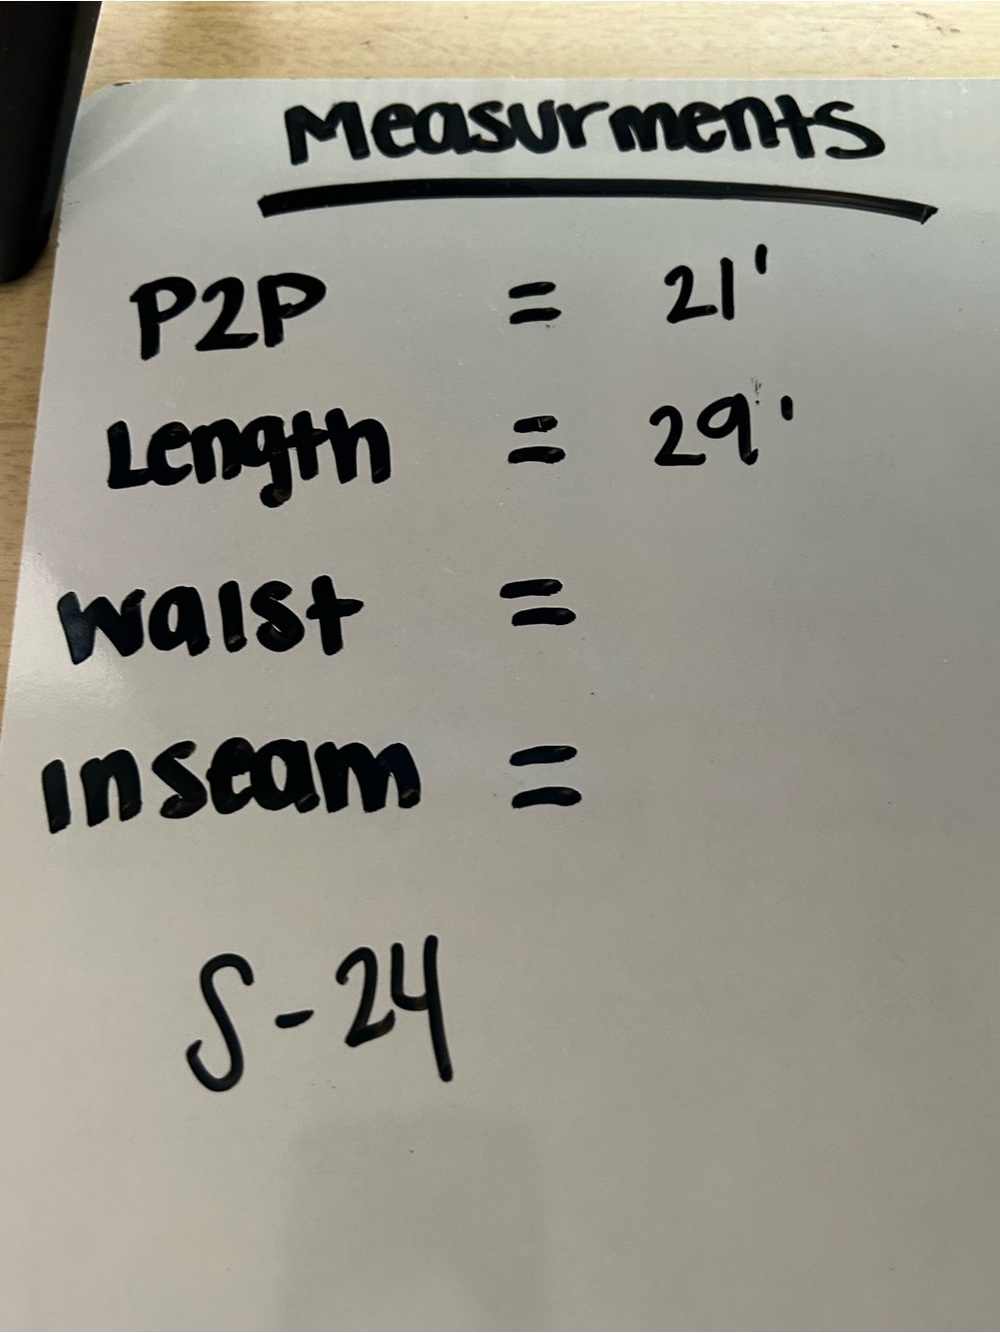 Measurments
P2P = 21'
Length = 29'
Waist =
Inseam =
S-24